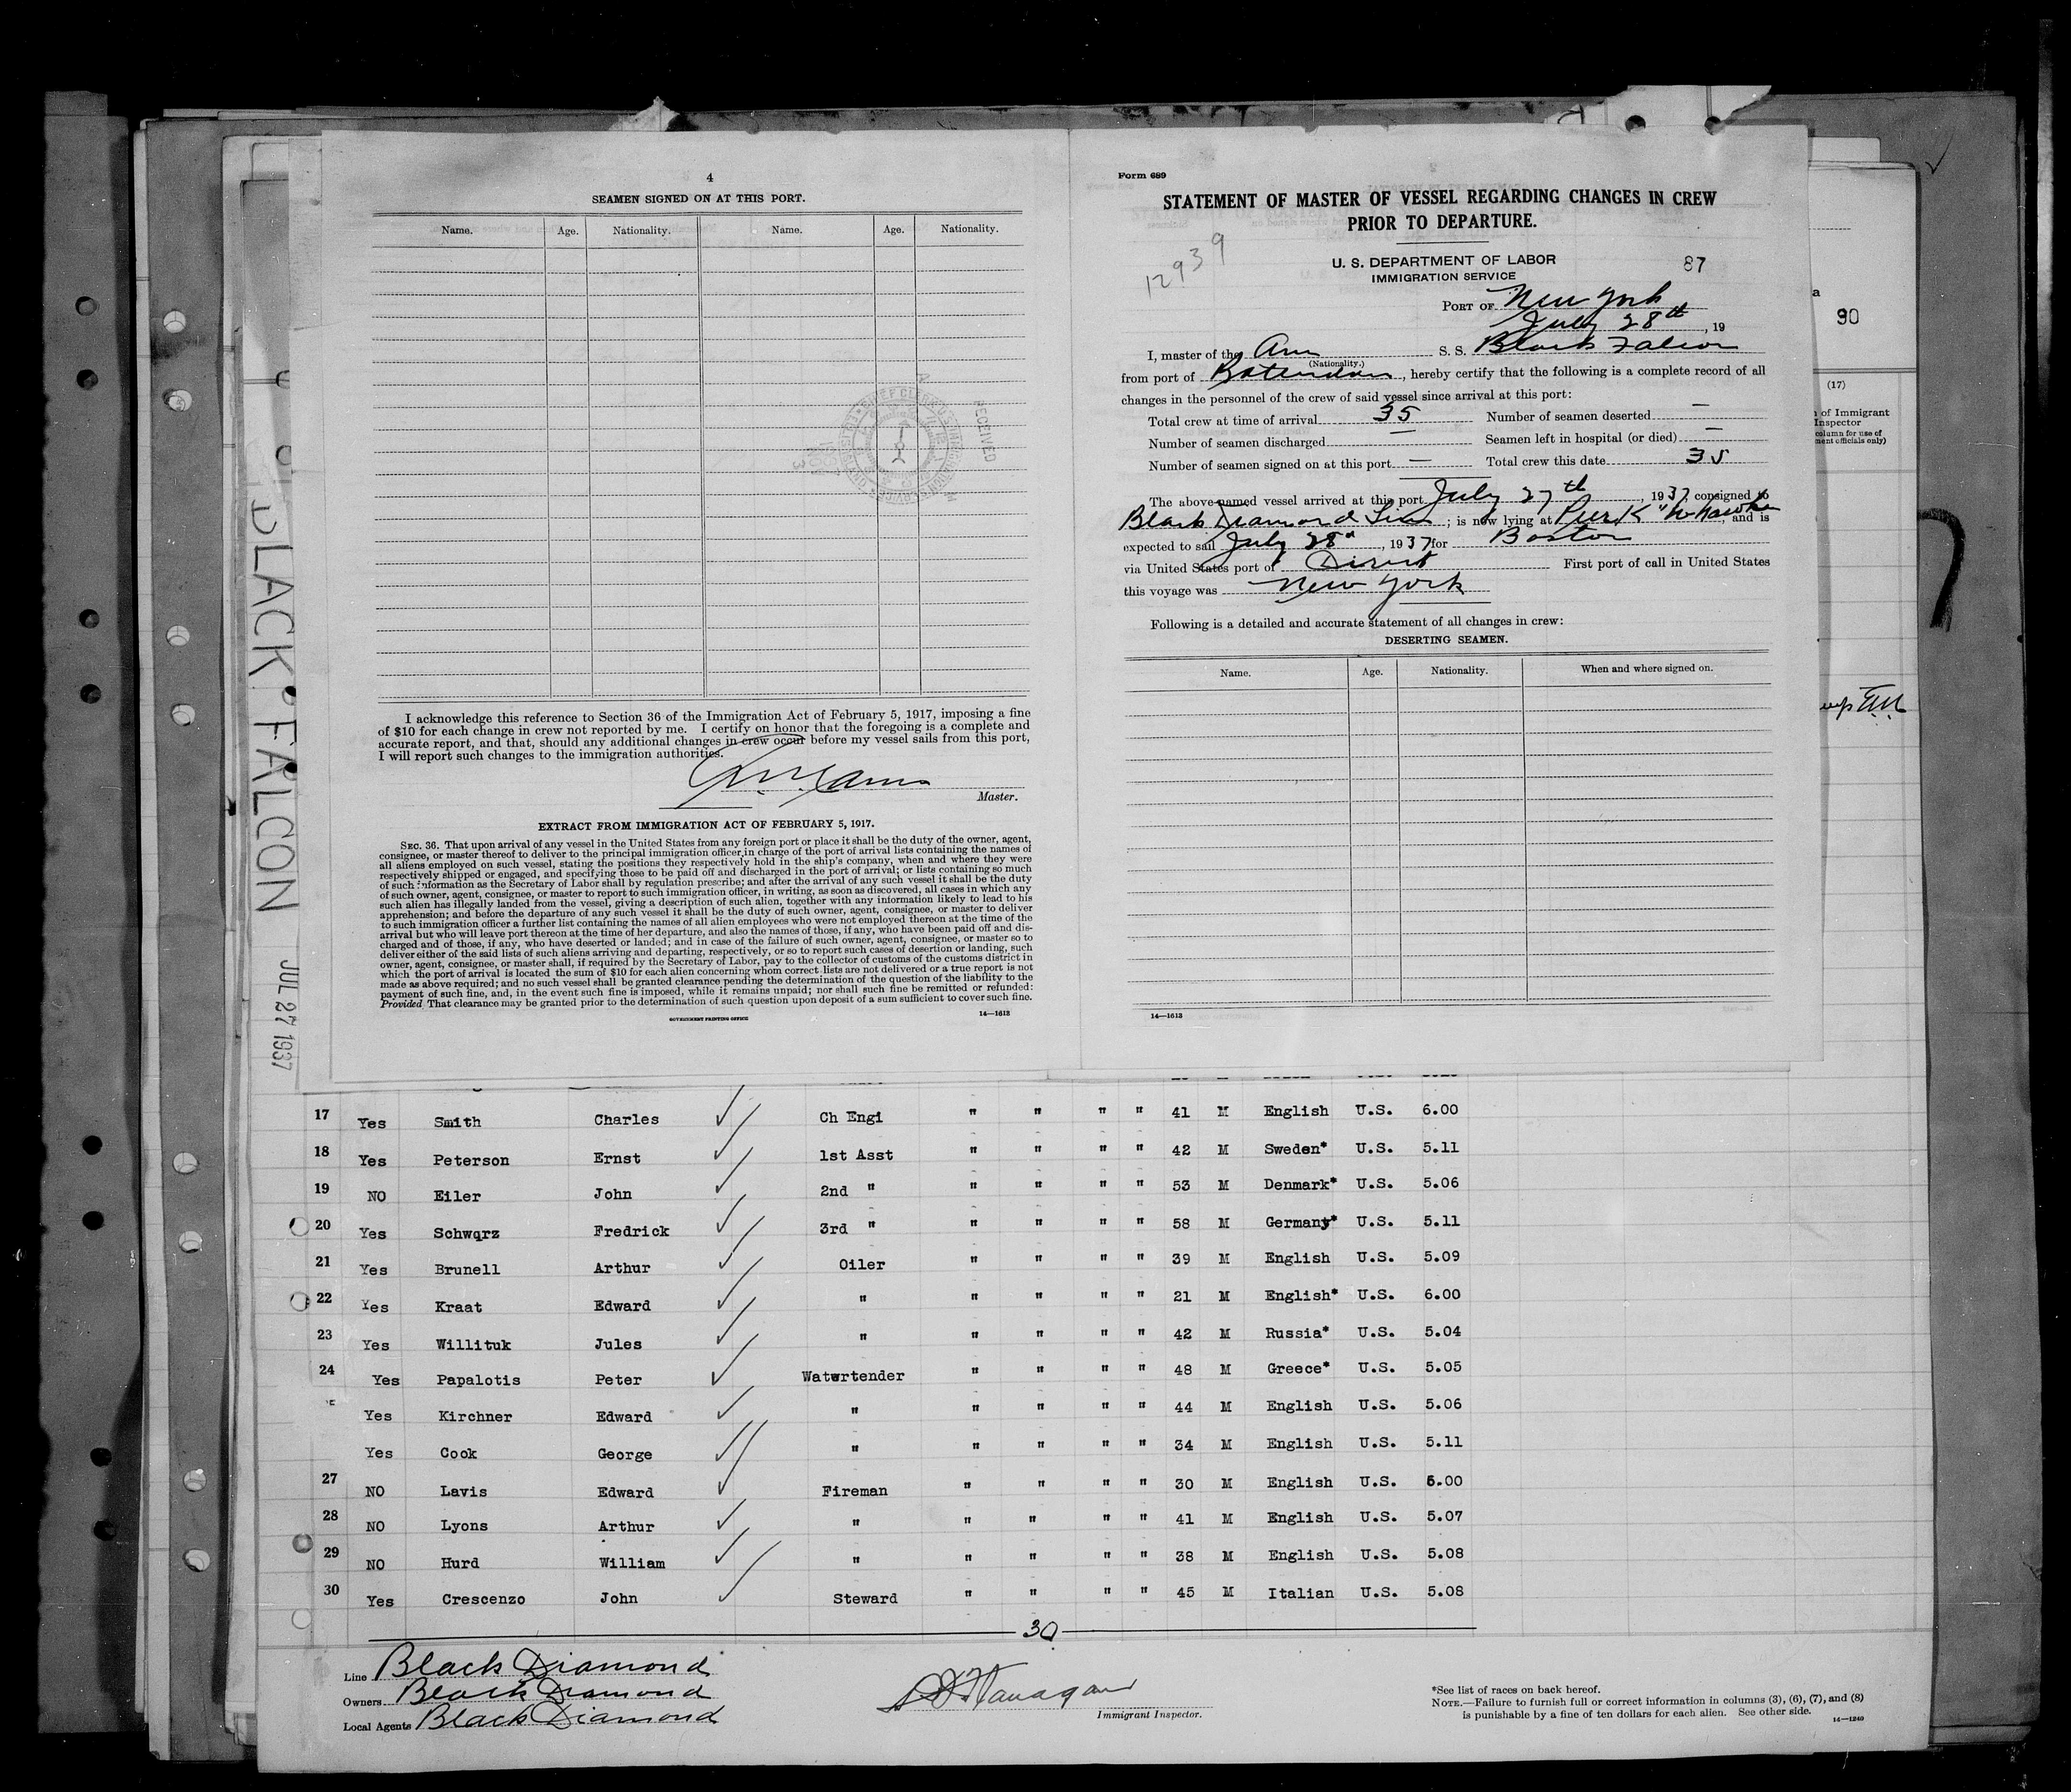 4
SEAMEN SIGNED ON AT THIS PORT.
Name. Age. Nationality. Name. Age. Nationality.
RECEIVED
I acknowledge this reference to Section 36 of the Immigration Act of February 5, 1917, imposing a fine
of $10 for each change in crew not reported by me. I certify on honor that the foregoing is a complete and
accurate report, and that, should any additional changes in crew occur before my vessel sails from this port,
I will report such changes to the immigration authorities.
Master.
EXTRACT FROM IMMIGRATION ACT OF FEBRUARY 5, 1917.
SEC. 36. That upon arrival of any vessel in the United States from any foreign port or place it shall be the duty of the owner, agent,
consignee, or master thereof to deliver to the principal immigration officer in charge of the port of arrival lists containing the names of
all aliens employed on such vessel, stating the positions they respectively hold in the ship's company, when and where they were
respectively shipped or engaged, and specifying those to be paid off and discharged in the port of arrival; or lists containing so much
of such information as the Secretary of Labor shall by regulation prescribe; and after the arrival of any such vessel it shall be the duty
of such owner, agent, consignee, or master to report to such immigration officer, in writing, as soon as discovered, all cases in which any
such alien has illegally landed from the vessel, giving a description of such alien, together with any information likely to lead to his
apprehension; and before the departure of any such vessel it shall be the duty of such owner, agent, consignee, or master to deliver
to such immigration officer a further list containing the names of all alien employees who were not employed thereon at the time of the
arrival but who will leave port thereon at the time of her departure, and also the names of those, if any, who have been paid off and dis-
charged and of those, if any, who have deserted or landed; and in case of the failure of such owner, agent, consignee, or master so to
deliver either of the said lists of such aliens arriving and departing, respectively, or so to report such cases of desertion or landing, such
owner, agent, consignee, or master shall, if required by the Secretary of Labor, pay to the collector of customs of the customs district in
which the port of arrival is located the sum of $10 for each alien concerning whom correct lists are not delivered or a true report is not
made as above required; and no such vessel shall be granted clearance pending the determination of the question of the liability to the
payment of such fine, and, in the event such fine is imposed, while it remains unpaid; nor shall such fine be remitted or refunded:
Provided That clearance may be granted prior to the determination of such question upon deposit of a sum sufficient to cover such fine.
GOVERNMENT PRINTING OFFICE 14—1613
Form 689
STATEMENT OF MASTER OF VESSEL REGARDING CHANGES IN CREW
PRIOR TO DEPARTURE.
12939
U. S. DEPARTMENT OF LABOR
IMMIGRATION SERVICE
87
PORT OF New York
July 28th, 19
I, master of the Am S. S. Black Falcon
(Nationality.)
from port of Rotterdam, hereby certify that the following is a complete record of all
changes in the personnel of the crew of said vessel since arrival at this port:
Total crew at time of arrival 35 Number of seamen deserted —
Number of seamen discharged — Seamen left in hospital (or died) —
Number of seamen signed on at this port — Total crew this date 35
The above-named vessel arrived at this port July 27th, 1937, consigned to
Black Diamond Line; is now lying at Pier K Whawken, and is
expected to sail July 28th, 1937 for Boston
via United States port of Direct First port of call in United States
this voyage was New York
Following is a detailed and accurate statement of all changes in crew:
DESERTING SEAMEN.
Name. Age. Nationality. When and where signed on.
14—1613
90
(17)
of Immigrant
Inspector
column for use of
ment officials only)
BLACK FALCON JUL 27 1937
17 Yes Smith Charles Ch Engi " " " " 41 M English U.S. 6.00
18 Yes Peterson Ernst 1st Asst " " " " 42 M Sweden* U.S. 5.11
19 NO Eiler John 2nd " " " " " 53 M Denmark* U.S. 5.06
20 Yes Schwqrz Fredrick 3rd " " " " " 58 M Germany* U.S. 5.11
21 Yes Brunell Arthur Oiler " " " " 39 M English U.S. 5.09
22 Yes Kraat Edward " " " " " 21 M English* U.S. 6.00
23 Yes Willituk Jules " " " " " 42 M Russia* U.S. 5.04
24 Yes Papalotis Peter Watwrtender " " " " 48 M Greece* U.S. 5.05
Yes Kirchner Edward " " " " " 44 M English U.S. 5.06
Yes Cook George " " " " " 34 M English U.S. 5.11
27 NO Lavis Edward Fireman " " " " 30 M English U.S. 6.00
28 NO Lyons Arthur " " " " " 41 M English U.S. 5.07
29 NO Hurd William " " " " " 38 M English U.S. 5.08
30 Yes Crescenzo John Steward " " " " 45 M Italian U.S. 5.08
30
Line Black Diamond
Owners Black Diamond
Local Agents Black Diamond
Flanagan
Immigrant Inspector.
*See list of races on back hereof.
NOTE.—Failure to furnish full or correct information in columns (3), (6), (7), and (8)
is punishable by a fine of ten dollars for each alien. See other side.
14—1240